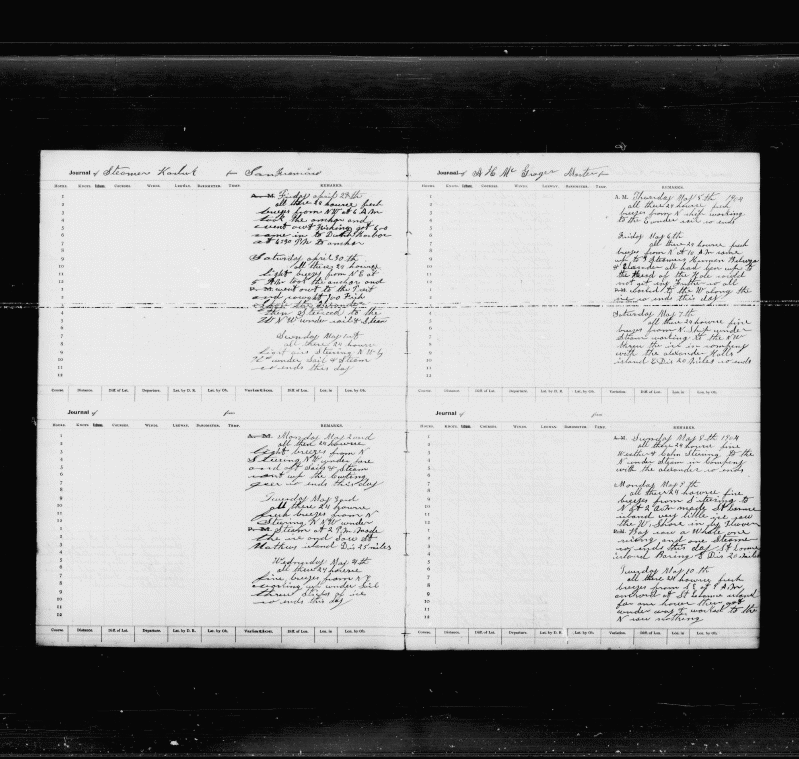 Journal of Steamer Karluk from San Francisco
HOURS. KNOTS. Fathoms. COURSES. WINDS. LEEWAY. BAROMETER. TEMP. REMARKS.
A. M. Friday april 29th
all these 24 hours fresh
breezes from NW at 6 A M
took the anchor and
went out Fishing got 600
came in to Dutch Harbor
at 6:30 P M to anchor
Saturday april 30th
all these 24 hours
light breezes from N E at
5 A M took the anchor and
P. M. went out to the
and caught 700 Fish
then Steered to the
N W under sail & Steam
Sunday May 1st
all these 24 hours
light airs Steering N W by
W under Sail & Steam
so ends this day
Course. Distance. Diff. of Lat. Departure. Lat. by D. R. Lat. by Ob. Variation. Diff. of Lon. Lon. in Lon. by Ob.
Journal of from
HOURS. KNOTS. Fathoms. COURSES. WINDS. LEEWAY. BAROMETER. TEMP. REMARKS.
A. M. Monday May 2nd
all these 24 hours
light breezes from N
Steering N W under fore
and aft Sails & Steam
sent up the
gear so ends this day
Tuesday May 3rd
all these 24 hours
fresh breezes from N
Steering N N W under
P. M. Steam at 2 P. M. made
the ice and saw St
Mathews island Dis 25 miles
Wednesday May 4th
all these 24 hours
fine breezes from N E
working up under Sail
threw strips of ice
so ends this day
Course. Distance. Diff. of Lat. Departure. Lat. by D. R. Lat. by Ob. Variation. Diff. of Lon. Lon. in Lon. by Ob.
Journal of A H Mc Gregor Master from
HOURS. KNOTS. Fathoms. COURSES. WINDS. LEEWAY. BAROMETER. TEMP. REMARKS.
A. M. Thursday May 5th 1904
all these 24 hours fresh
breezes from N ship working
to the E under sail so ends
Friday May 6th
all these 24 hours fresh
breezes from N at 10 A M came
up to 3 Steamers Herman Beluga
& alexander all had been up to
the Head of the Hole could
not get any further so all
worked to the W along the
ice so ends this day
Saturday May 7th
all these 24 hours fine
breezes from N Ship under
Steam working to the N W
threw the ice in company
with the alexander Halls
island E Dis 20 Miles so ends
Course. Distance. Diff. of Lat. Departure. Lat. by D. R. Lat. by Ob. Variation. Diff. of Lon. Lon. in Lon. by Ob.
Journal of from
HOURS. KNOTS. Fathoms. COURSES. WINDS. LEEWAY. BAROMETER. TEMP. REMARKS.
A. M. Sunday May 8th 1904
all these 24 hours fine
Weather & Calm Steering to the
N under Steam in Company
with the alexander so ends
Monday May 9th
all these 24 hours fine
breezes from S Steering to
N at 2 A M made St Lawrence
island very little ice saw
the W Shore in by Plover
P. M. Bay saw a Whale one
rising and one Steamer
so ends this day St Lawrence
island Baring E Dis 20 miles
Tuesday May 10th
all these 24 hours fresh
breezes from S E at 9 A M
anchord at St Lawrence island
for one hour then got
under way & worked to the
N saw nothing
Course. Distance. Diff. of Lat. Departure. Lat. by D. R. Lat. by Ob. Variation. Diff. of Lon. Lon. in Lon. by Ob.